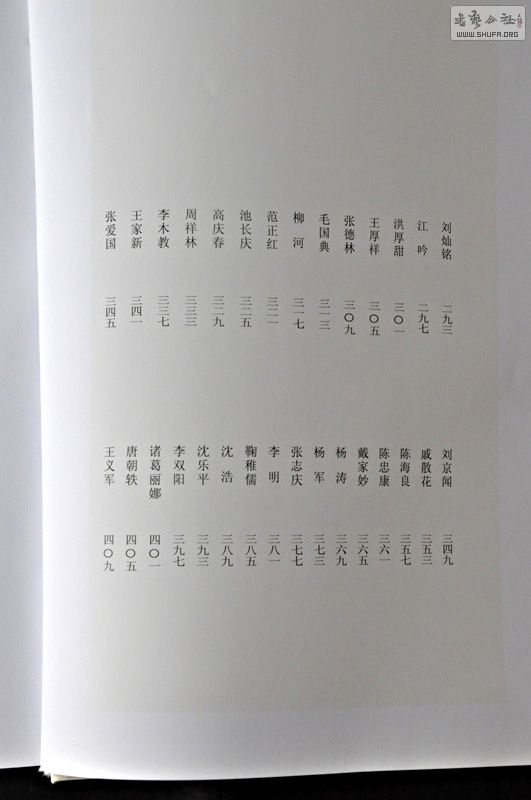 书艺公社
WWW.SHUFA.ORG
刘灿铭 二九三
江吟 二九七
洪厚甜 三〇一
王厚祥 三〇五
张德林 三〇九
毛国典 三一三
柳河 三一七
范正红 三二一
池长庆 三二五
高庆春 三二九
周祥林 三三三
李木教 三三七
王家新 三四一
张爱国 三四五
刘京闻 三四九
戚散花 三五三
陈海良 三五七
陈忠康 三六一
戴家妙 三六五
杨涛 三六九
杨军 三七三
张志庆 三七七
李明 三八一
鞠稚儒 三八五
沈浩 三八九
沈乐平 三九三
李双阳 三九七
诸葛丽娜 四〇一
唐朝轶 四〇五
王义军 四〇九